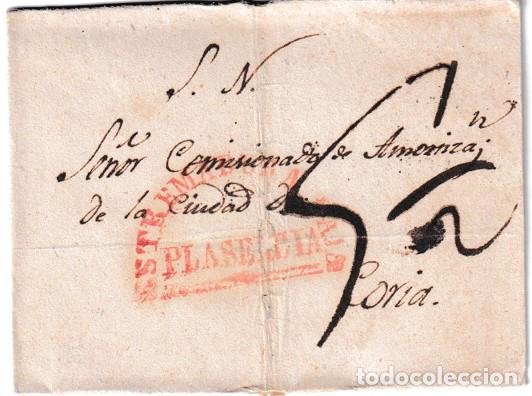 S. N.
Señor Comisionado de Amortizaⁿ
de la Ciudad de
ESTREMADURA
PLASENCIA
Coria.
todocoleccion